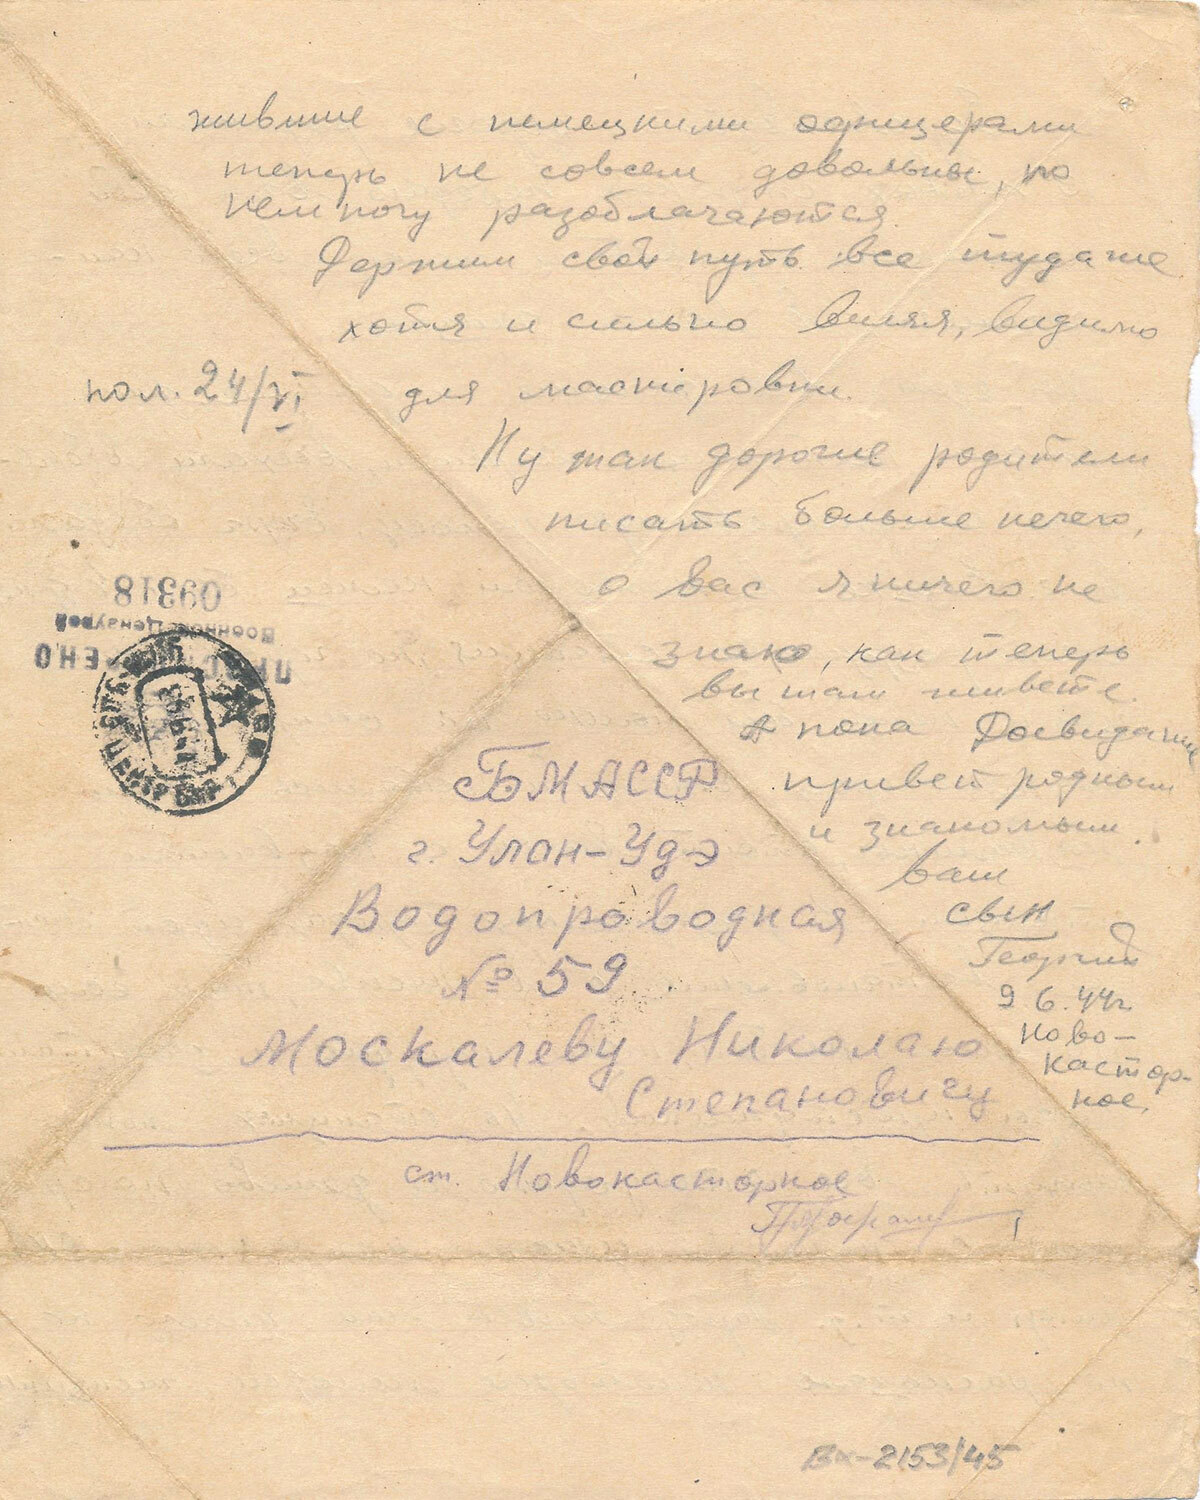 жившие с немецкими офицерами
теперь не совсем довольны, по
немногу разоблачаются.
Держим свой путь все туда же
хотя и сильно виляя, видимо
для маскировки.
пол. 24/VI
Ну так дорогие родители
писать больше нечего,
о вас я ничего не
знаю, как теперь
вы там живете.
А пока Досвидание
привет родным
и знакомым.
Ваш
сын
Георгий
9 6.44г
Ново-
касторное.
ПРОСМОТРЕНО
Военной Цензурой
09318
БМАССР
г. Улан-Удэ
Водопроводная
№ 59
Москалеву Николаю
Степановичу
ст. Новокасторное
Вх-2153/45